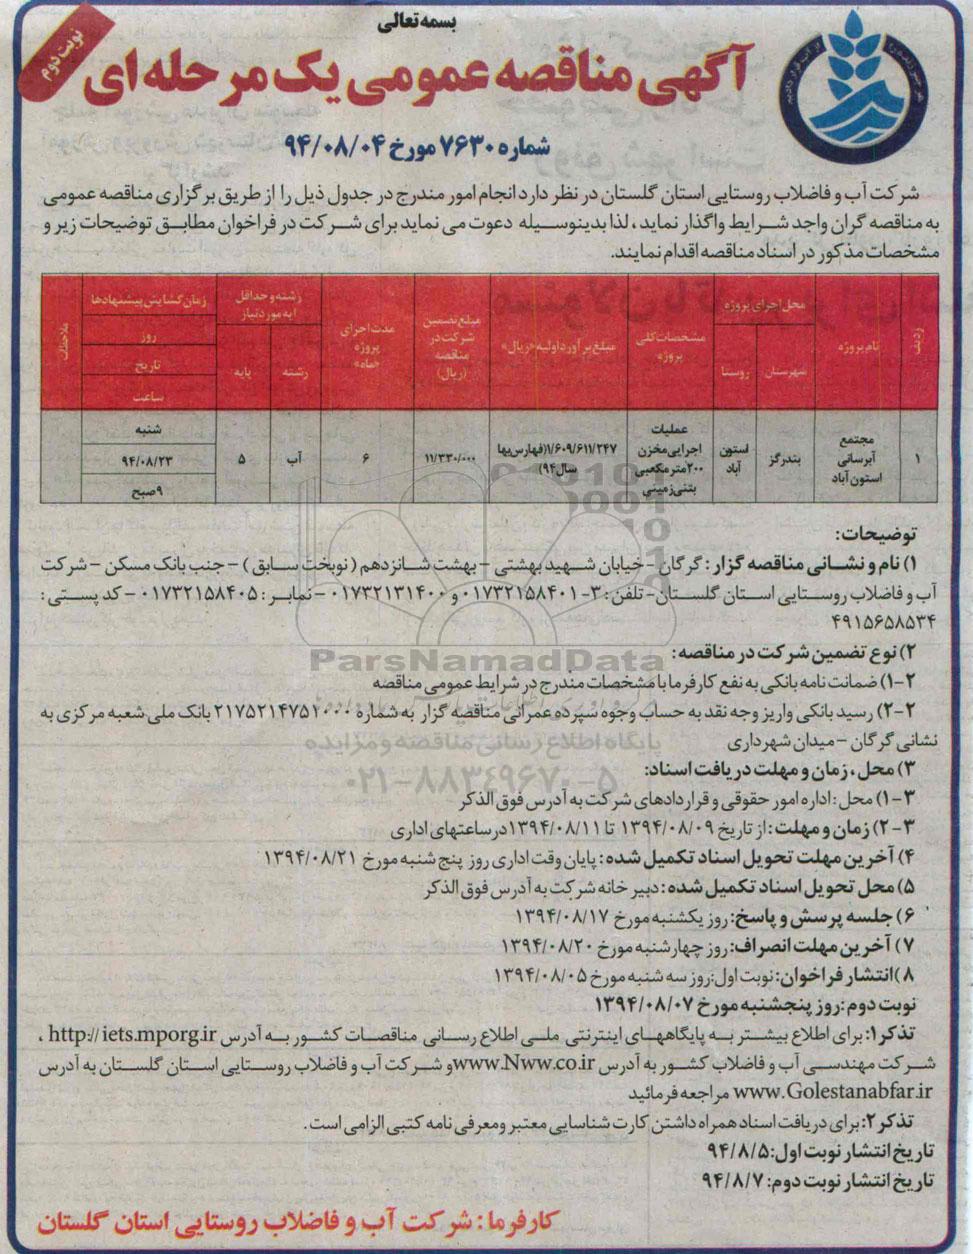 بسمه تعالی
نوبت دوم
آگهی مناقصه عمومی یک مرحله ای
شماره ۷۶۳۰ مورخ ۹۴/۰۸/۰۴
شرکت آب و فاضلاب روستایی استان گلستان در نظر دارد انجام امور مندرج در جدول ذیل را از طریق برگزاری مناقصه عمومی
به مناقصه گران واجد شرایط واگذار نماید، لذا بدینوسیله دعوت می نماید برای شرکت در فراخوان مطابق توضیحات زیر و
مشخصات مذکور در اسناد مناقصه اقدام نمایند.
ردیف
نام پروژه
محل اجرای پروژه
شهرستان
روستا
مشخصات کلی پروژه
مبلغ برآورد اولیه «ریال»
مبلغ تضمین شرکت در مناقصه (ریال)
مدت اجرای پروژه «ماه»
رشته و حداقل پایه مورد نیاز
رشته
پایه
زمان گشایش پیشنهادها
روز
تاریخ
ساعت
ملاحظات
۱
مجتمع آبرسانی استون آباد
بندرگز
استون آباد
عملیات اجرایی مخزن ۲۰۰ متر مکعبی بتنی زمینی
۱/۶۰۹/۶۱۱/۲۴۷(فهارس بها سال ۹۴)
۱۱/۳۳۰/۰۰۰
۶
آب
۵
شنبه
۹۴/۰۸/۲۳
۹ صبح
توضیحات:
۱) نام و نشانی مناقصه گزار: گرگان - خیابان شهید بهشتی - بهشت شانزدهم (نوبخت سابق) - جنب بانک مسکن - شرکت
آب و فاضلاب روستایی استان گلستان - تلفن: ۳-۰۱۷۳۲۱۵۸۴۰۱ و ۰۱۷۳۲۱۳۱۴۰۰ - نمابر: ۰۱۷۳۲۱۵۸۴۰۵ - کد پستی:
۴۹۱۵۶۵۸۵۳۴
۲) نوع تضمین شرکت در مناقصه:
۲-۱) ضمانت نامه بانکی به نفع کارفرما با مشخصات مندرج در شرایط عمومی مناقصه
۲-۲) رسید بانکی واریز وجه نقد به حساب وجوه سپرده عمرانی مناقصه گزار به شماره ۲۱۷۵۲۱۴۷۵۱۰۰۰ بانک ملی شعبه مرکزی به
نشانی گرگان - میدان شهرداری
۳) محل، زمان و مهلت دریافت اسناد:
۳-۱) محل: اداره امور حقوقی و قراردادهای شرکت به آدرس فوق الذکر
۳-۲) زمان و مهلت: از تاریخ ۱۳۹۴/۰۸/۰۹ تا ۱۳۹۴/۰۸/۱۱ در ساعتهای اداری
۴) آخرین مهلت تحویل اسناد تکمیل شده: پایان وقت اداری روز پنج شنبه مورخ ۱۳۹۴/۰۸/۲۱
۵) محل تحویل اسناد تکمیل شده: دبیرخانه شرکت به آدرس فوق الذکر
۶) جلسه پرسش و پاسخ: روز یکشنبه مورخ ۱۳۹۴/۰۸/۱۷
۷) آخرین مهلت انصراف: روز چهارشنبه مورخ ۱۳۹۴/۰۸/۲۰
۸) انتشار فراخوان: نوبت اول: روز سه شنبه مورخ ۱۳۹۴/۰۸/۰۵
نوبت دوم: روز پنجشنبه مورخ ۱۳۹۴/۰۸/۰۷
تذکر۱: برای اطلاع بیشتر به پایگاههای اینترنتی ملی اطلاع رسانی مناقصات کشور به آدرس http://iets.mporg.ir ،
شرکت مهندسی آب و فاضلاب کشور به آدرس www.Nww.co.ir و شرکت آب و فاضلاب روستایی استان گلستان به آدرس
www.Golestanabfar.ir مراجعه فرمائید
تذکر۲: برای دریافت اسناد همراه داشتن کارت شناسایی معتبر و معرفی نامه کتبی الزامی است.
تاریخ انتشار نوبت اول: ۹۴/۸/۵
تاریخ انتشار نوبت دوم: ۹۴/۸/۷
کارفرما: شرکت آب و فاضلاب روستایی استان گلستان
ParsNamadData
پایگاه اطلاع رسانی مناقصه و مزایده
۰۲۱-۸۸۳۴۹۶۷۰-۵